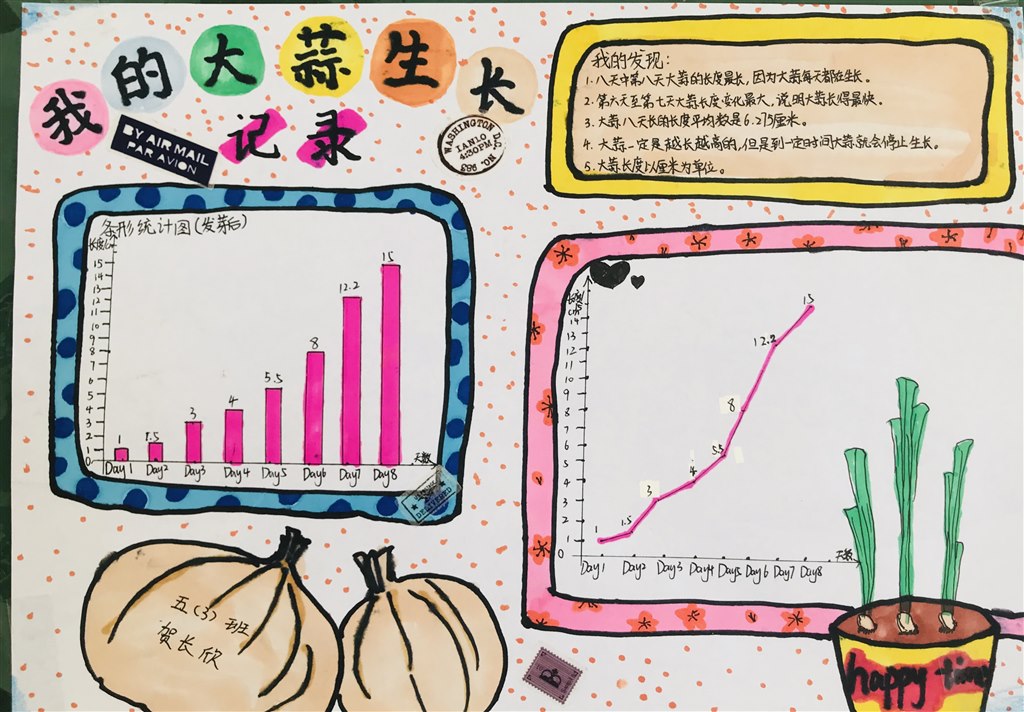 我的大蒜生长
记录
BY AIR MAIL
PAR AVION
WASHINGTON D.C.
4:30PM
我的发现:
1.八天中第八天大蒜的长度最长,因为大蒜每天都在生长。
2.第六天至第七天大蒜长度变化最大,说明大蒜长得最快。
3.大蒜八天长的长度平均数是6.275厘米。
4.大蒜一定是越长越高的,但是到一定时间大蒜就会停止生长。
5.大蒜长度以厘米为单位。
条形统计图(发芽后)
15
14
13
12
11
10
9
8
7
6
5
4
3
2
1
0
1
1.5
3
4
5.5
8
12.2
15
Day1 Day2 Day3 Day4 Day5 Day6 Day7 Day8
天数
14
13
12
11
10
9
8
7
6
5
4
3
2
1
0
1
1.5
3
4
5.5
8
12.2
15
Day1 Day2 Day3 Day4 Day5 Day6 Day7 Day8
天数
五(3)班
贺长欣
happy time